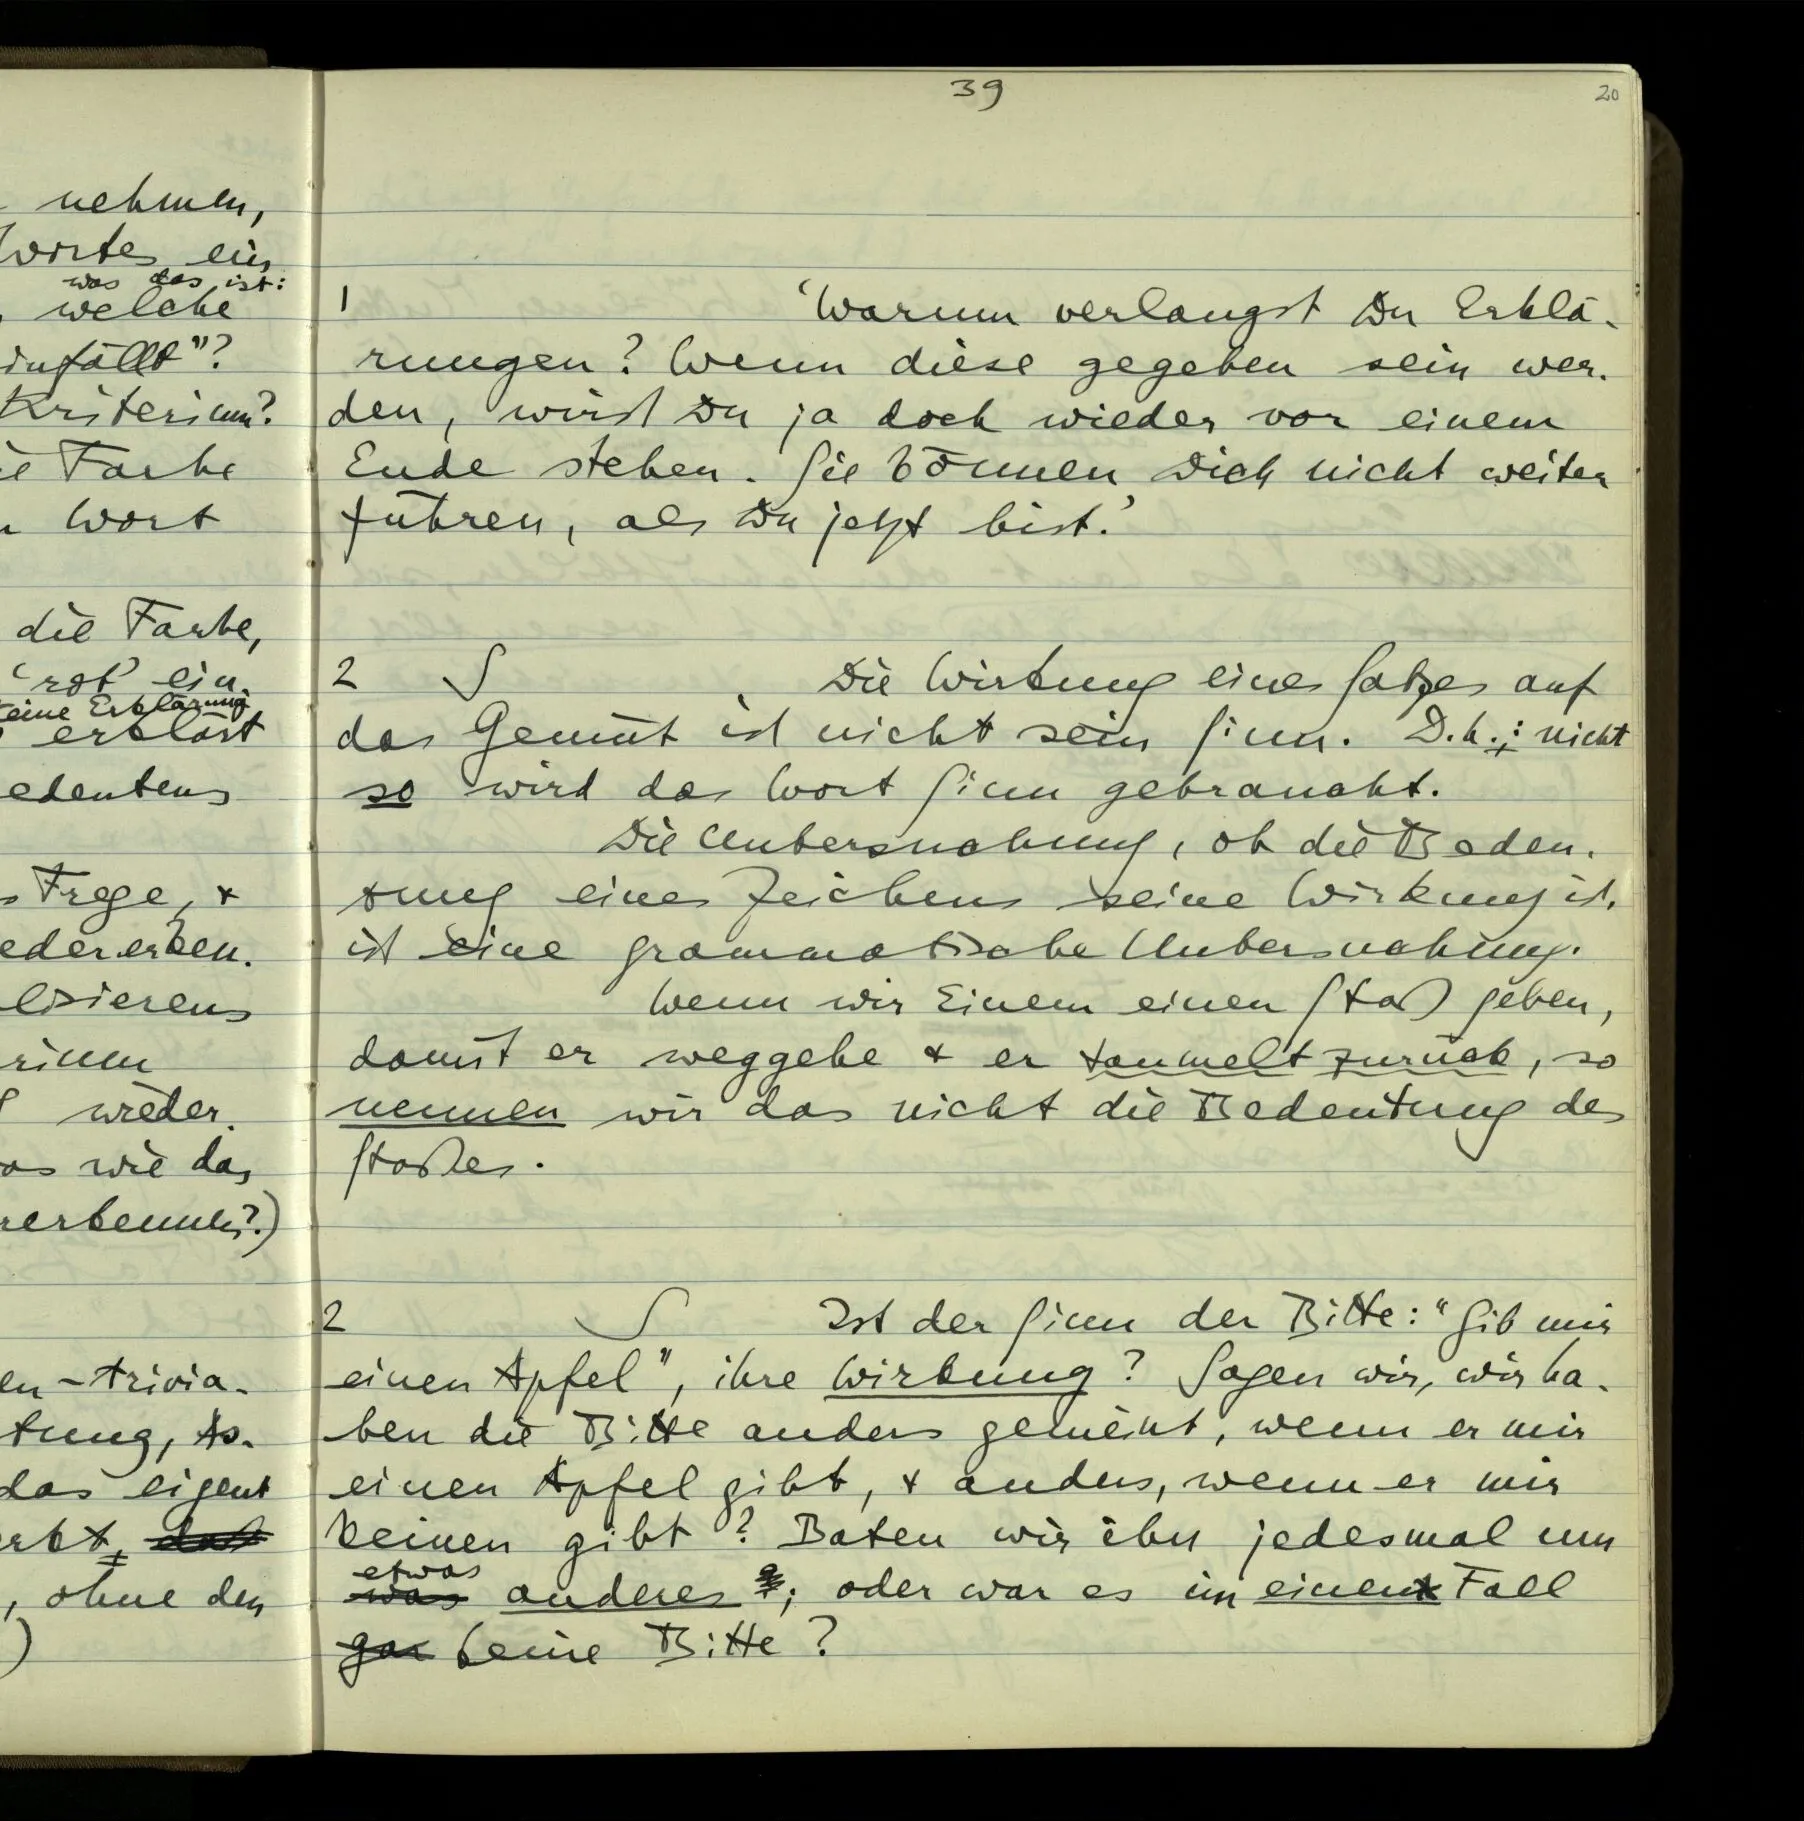 nehmen,
Wortes ein
was das ist:
welche
einfällt"?
Kriterium?
Farbe
Wort
die Farbe,
'rot' ein.
eine Erklärung
erklärt
edeutens
Frege, &
lisierens
rium
wieder.
wie das
rerkennen?.)
en-trivia-
tung,
das eigent
dass
, ohne den
)
39
20
1 'Warum verlangst Du Erklä-
rungen? Wenn diese gegeben sein wer-
den, wirst Du ja doch wieder vor einem
Ende stehen. Sie können Dich nicht weiter
führen, als Du jetzt bist.'
2 S Die Wirkung eines Satzes auf
das Gemüt ist nicht sein Sinn. D.h.: nicht
so wird das Wort Sinn gebraucht.
Die Untersuchung, ob die Bedeu-
tung eines Zeichens seine Wirkung ist,
ist eine grammatische Untersuchung.
Wenn wir Einem einen Stoß geben,
damit er weggehe & er taumelt zurück, so
nennen wir das nicht die Bedeutung des
Stoßes.
2 S Ist der Sinn der Bitte: "Gib mir
einen Apfel", ihre Wirkung? Sagen wir, wir ha-
ben die Bitte anders gemeint, wenn er mir
einen Apfel gibt, & anders, wenn er mir
keinen gibt? Baten wir ihn jedesmal um
etwas
was anderes; oder war es im einen Fall
gar keine Bitte?